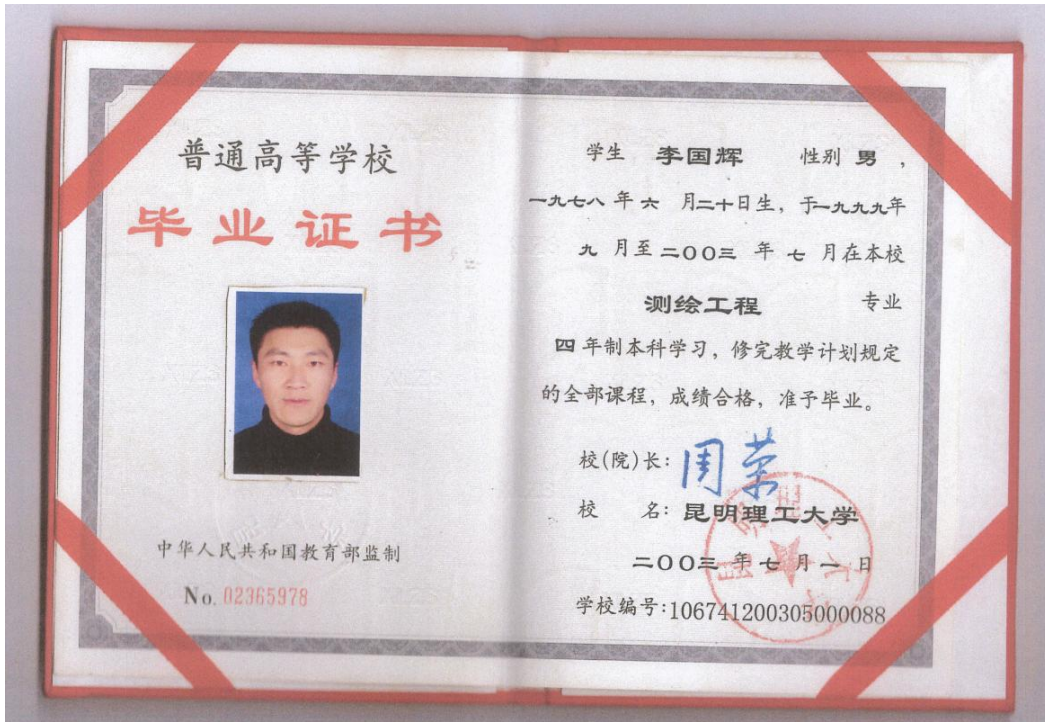 普通高等学校
毕业证书
中华人民共和国教育部监制
No. 02365978
学生 李国辉 性别 男,
一九七八年六 月二十日生, 于一九九九年
九 月至二〇〇三 年 七 月在本校
测绘工程 专业
四年制本科学习, 修完教学计划规定
的全部课程, 成绩合格, 准予毕业。
校(院)长: 周荣
校 名: 昆明理工大学
二〇〇三 年 七 月 一 日
学校编号:106741200305000088